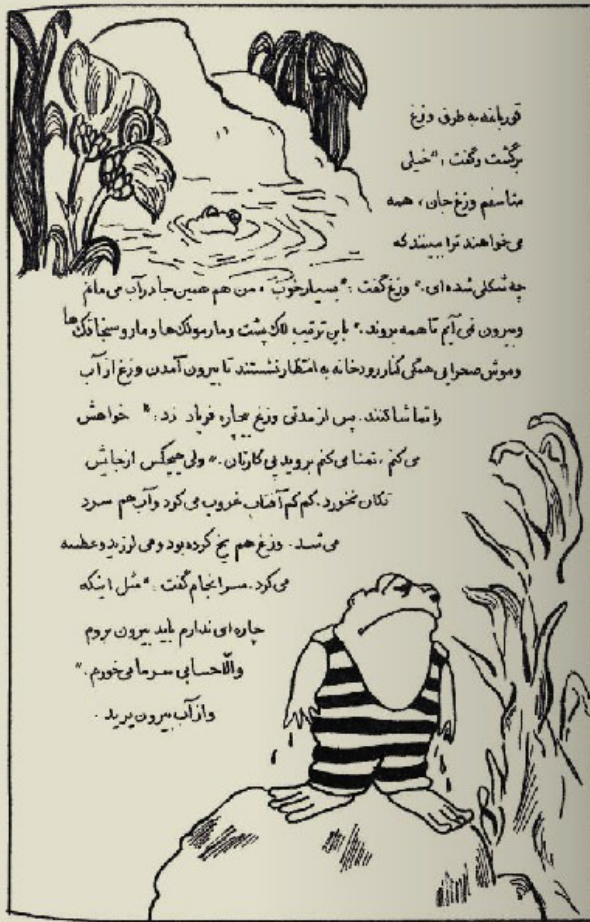 قورباغه به طرف وزغ
برگشت وگفت : «خیلی
متاسفم وزغ جان ، همه
می خواهند ترا ببینند که
چه شکلی شده ای.» وزغ گفت : «بسیار خوب ، من هم همین جا در آب می مانم
و بیرون نمی آیم تا همه بروند.» باین ترتیب لاک پشت و مارمولک ها و مار و سنجاقک ها
و موش صحرایی همگی کنار رودخانه به انتظار نشستند تا بیرون آمدن وزغ از آب
را تماشا کنند. پس از مدتی وزغ بیچاره فریاد زد : « خواهش
می کنم ، تمنا می کنم بروید پی کارتان .» ولی هیچکس از جایش
تکان نخورد. کم کم آفتاب غروب می کرد و آب هم سرد
می شد . وزغ هم یخ کرده بود و می لرزید و عطسه
می کرد. سرانجام گفت : «مثل اینکه
چاره ای ندارم باید بیرون بروم
والّا حسابی سرما می خورم .»
و از آب بیرون پرید .